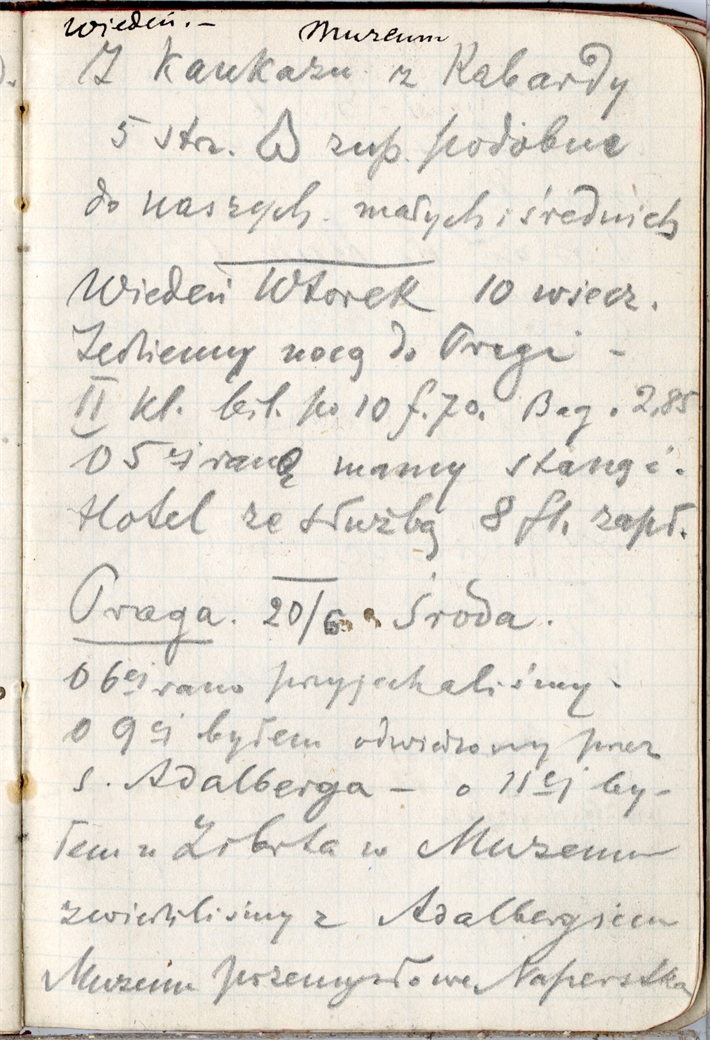 Wiedeń. – Muzeum
Z Kaukazu z Kabardy
5 strz. zup. podobne
do naszych małych i średnich
Wiedeń Wtorek 10 wiecz.
Jedziemy nocą do Pragi –
II kl. bil. po 10 f. 70. Bag. 2,85
O 5 ej rano mamy stangi.
Hotel ze służbą 8 fl. zapł.
Praga. 20/6 Środa.
O 6ej rano przyjechaliśmy.
o 9ej byłem odwiedzony przez
s. Adalberga – o 11ej by-
łem u Zibrta w Muzeum
zwiedziliśmy z Adalbergiem
Muzeum przemysłowe Naperstka